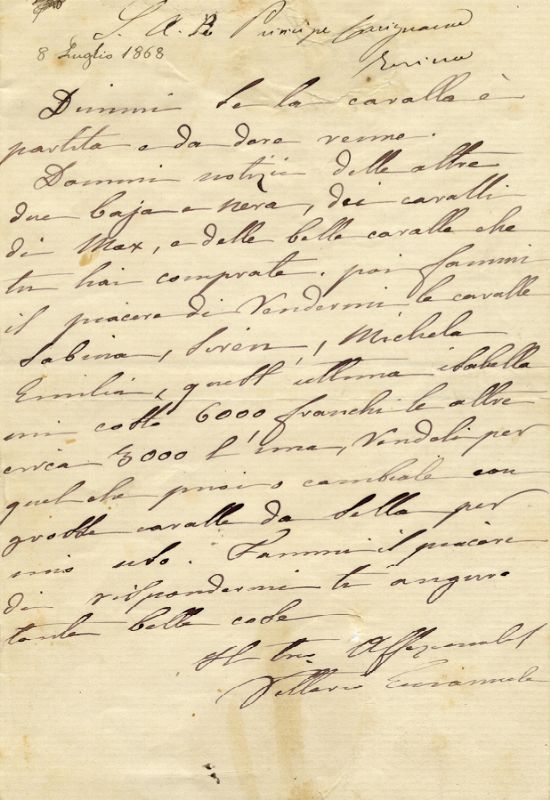 S. A. Il Principe Carignano
8 Luglio 1868
Torino
Dimmi se la cavalla è
partita e da dove venne.
Dammi notizie delle altre
due baja e nera, dei cavalli
di Max, e delle belle cavalle che
tu hai comprate. poi fammi
il piacere di Vendermi le cavalle
Sabina, Siren, Michela
Emilia, quest' ultima isabella
mi costò 6000 franchi le altre
circa 3000 l'una, Vendeli per
quel che puoi o cambiale con
grosse cavalle da Sella per
mio uso. Fammi il piacere
di rispondermi ti auguro
tante belle cose
Il tuo
Vittorio Emanuele